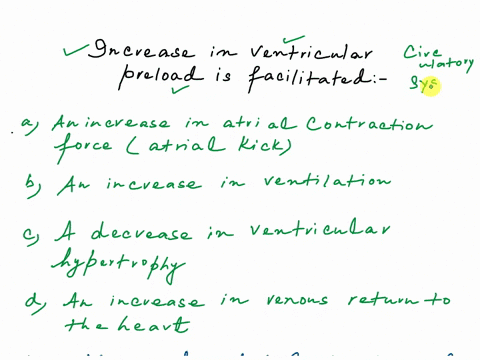 Increase in ventricular
preload is facilitated:-
Circ
ulatory
Sys
a) An increase in atrial Contraction
force (atrial Kick)
b) An increase in ventilation
c) A decrease in ventricular
hypertrophy
d) An increase in venous return to
the heart